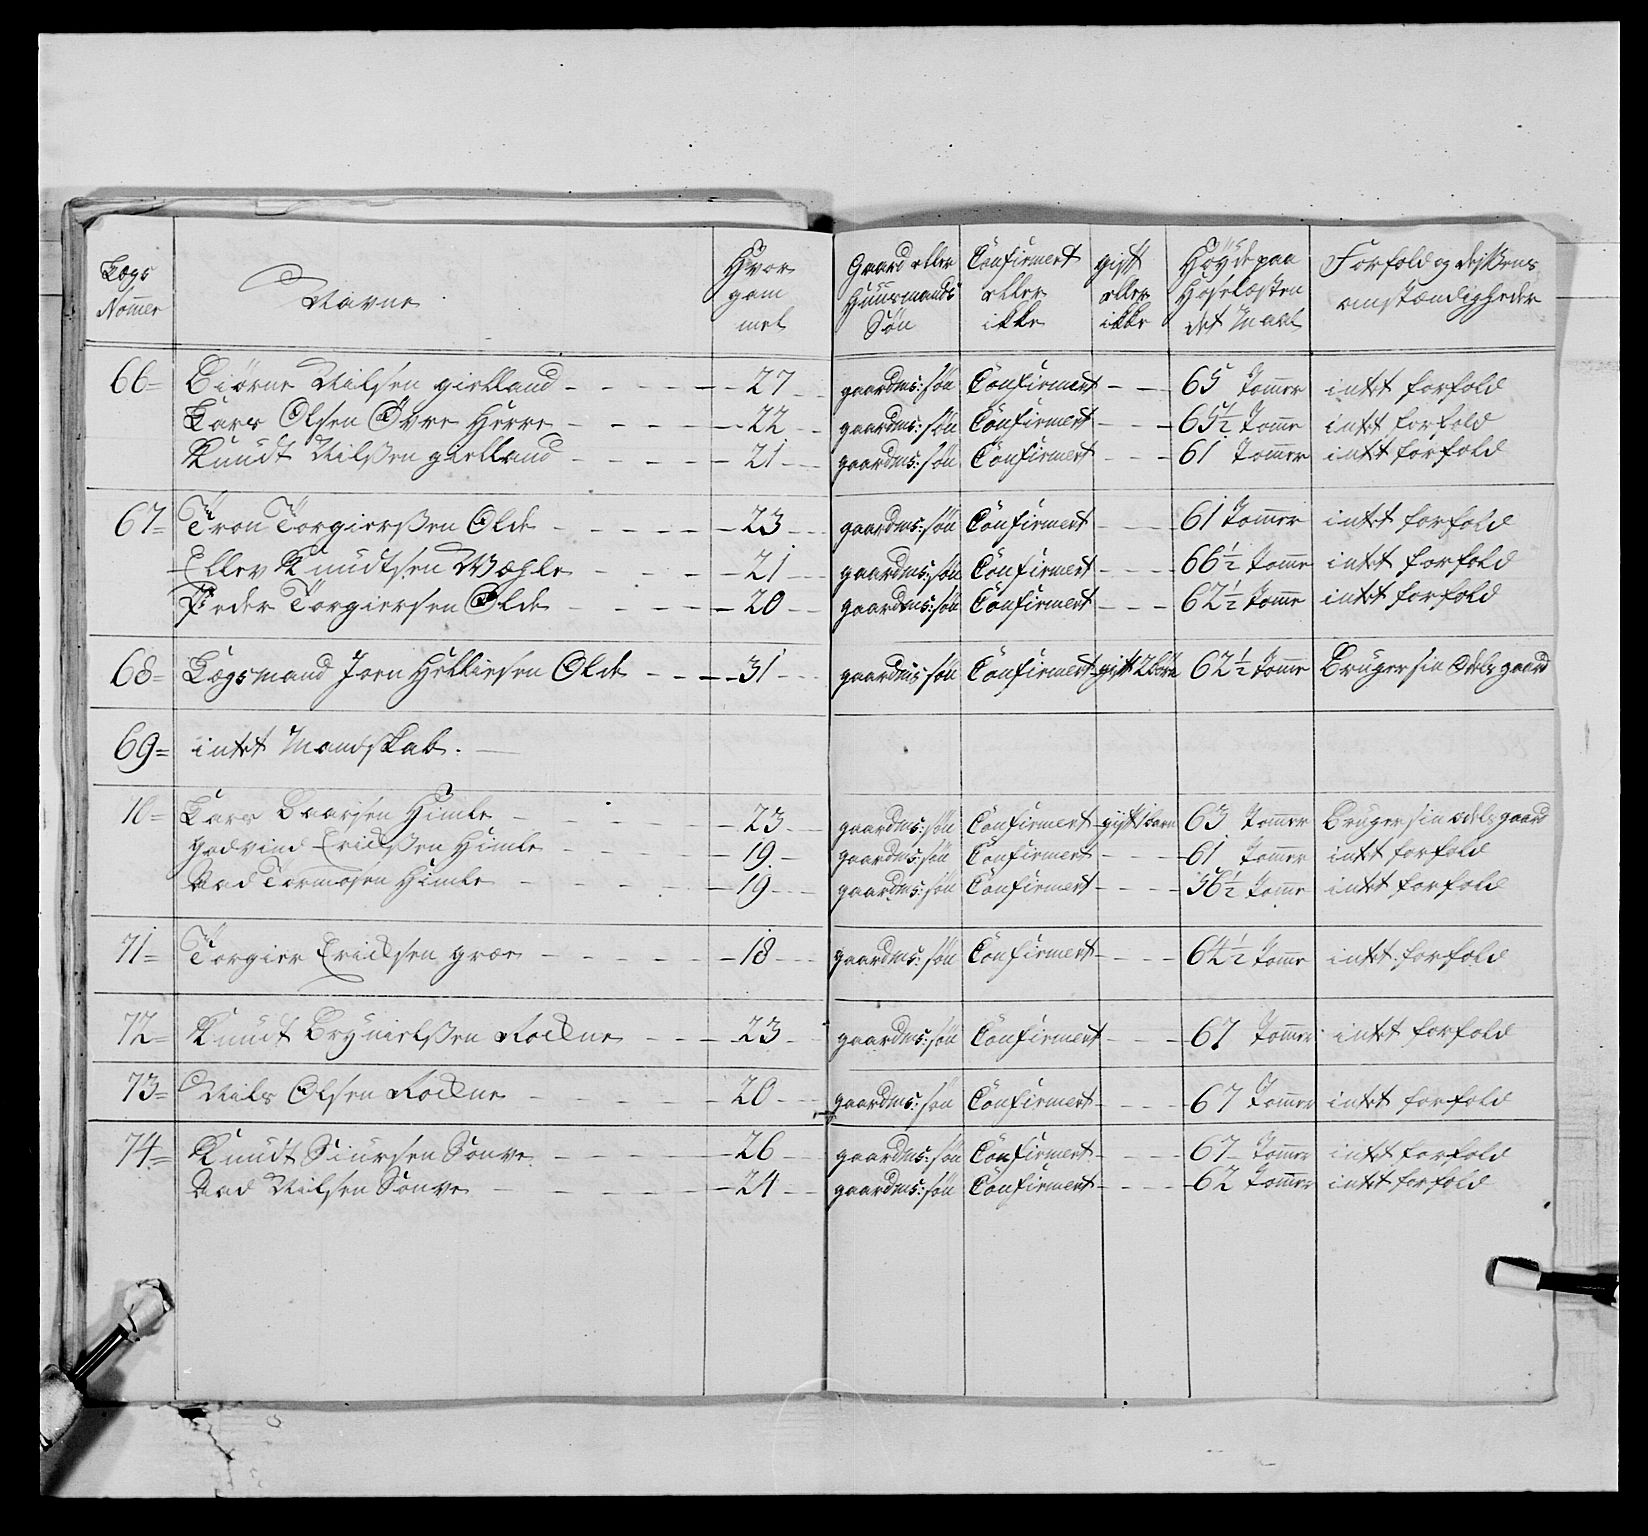 Lægs Nomer | Navne | Hvor gam mel | Gaard eller Huusmands Søn | Confirmert eller ikke | gift eller ikke | Høyde paa Hoselæsten det Maal | Forfold og dessens omstændigheder
66 = Biørne Nilsen gielland - - - 27 - gaardms: søn Confirmert - - 65 Tommer intet forfold
Lars Olsen Øvre Herre - - - 22 - gaardms: søn Confirmert - - 65½ Tomme intet forfold
Knudt Nilsen gielland - - - 21 - gaardms: søn Confirmert - - 61 Tommer intet forfold
67 = Tron Torgiersen Olde - - - 23 - gaardms: søn Confirmert - - 61 Tommer intet forfold
Ellev Knudtsen Væhle - - - 21 - gaardms: søn Confirmert - - 66½ Tomme intet forfold
Peder Torgiersen Olde - - - 20 - gaardms: søn Confirmert - - 62½ Tomme intet forfold
68 = Lægsmand Joen Helliesen Olde - - - 31 - gaardms: søn Confirmert gift 2 børn 62½ Tomme Bruger sin Odels gaard
69 = intet Mandskab.
70 = Lars Baarsen Himle - - - 23 - gaardms: søn Confirmert gift 1 barn 63 Tommer Bruger sin odels gaard
Godvind Ericksen Himle - - - 19 - gaardms: søn Confirmert - - 61 Tommer intet forfold
Aad Tormosen Himle - - - 19 - gaardms: søn Confirmert - - 56½ Tomme intet forfold
71 = Torgier Ericksen græe - - - 18 - gaardms: søn Confirmert - - 64½ Tomme intet forfold
72 = Knudt Brynielsen Rockne - - - 23 - gaardms: søn Confirmert - - 67 Tommer intet forfold
73 = Nils Olsen Rockne - - - 20 - gaardms: søn Confirmert - - 67 Tommer intet forfold
74 = Knudt Siursen Sonve - - - 26 - gaardms: søn Confirmert - - 67 Tommer intet forfold
Aad Nilsen Sonve - - - 24 - gaardms: søn Confirmert - - 62 Tommer intet forfold